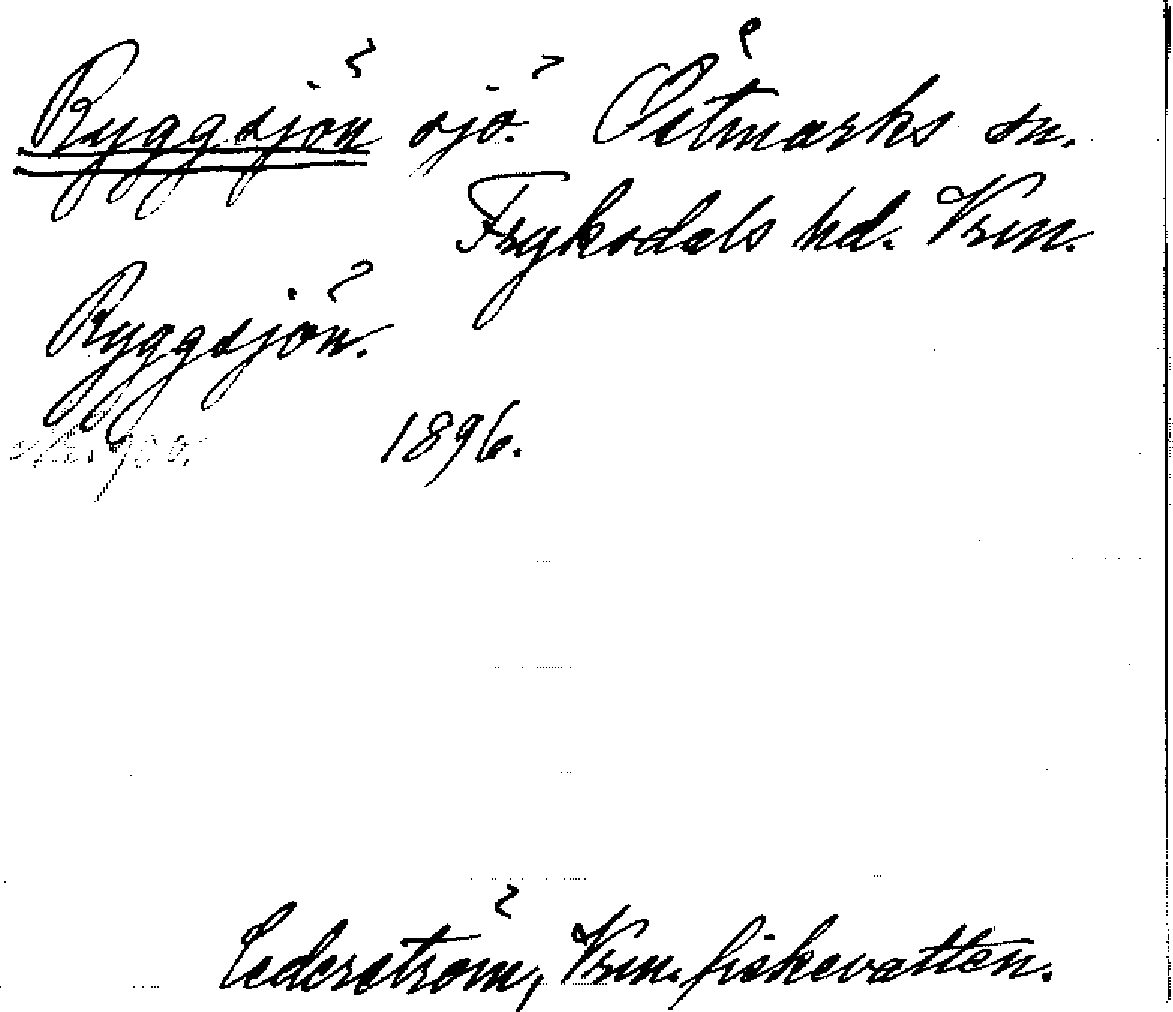 Ryggsjön sjö. Östmarks sn.
Fryksdals hd. Vrm.
Ryggsjön.
1896.
Cederström, Vrm. fiskevatten.